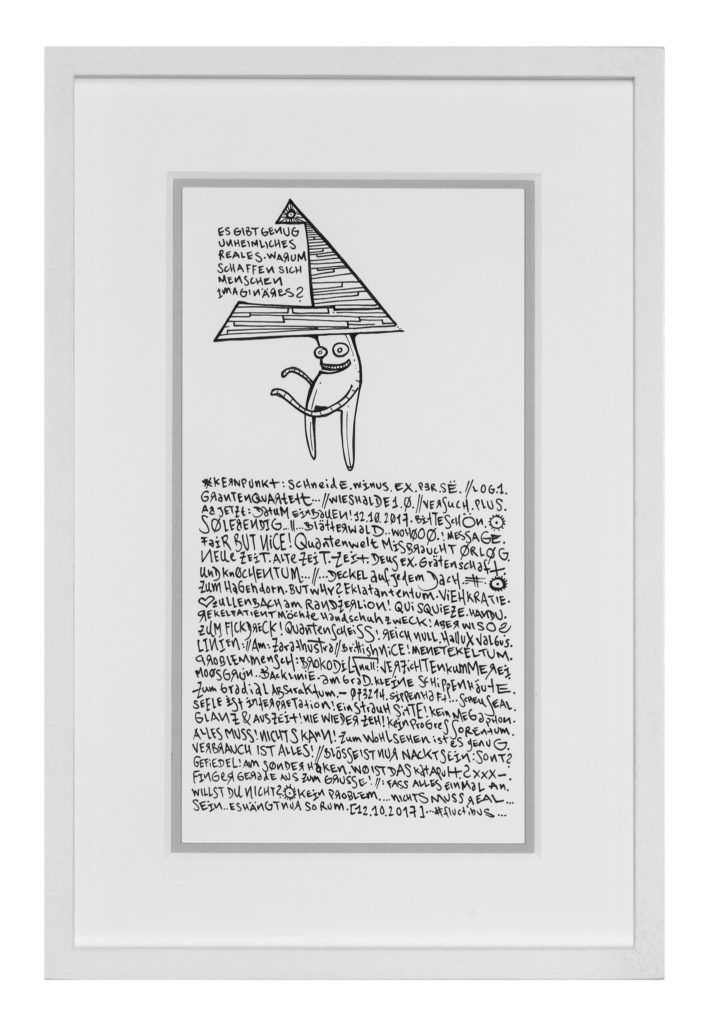 ES GIBT GENUG
UNHEIMLICHES
REALES. WARUM
SCHAFFEN SICH
MENSCHEN
IMAGINÄRES?
KERNPUNKT: SCHNEIDE. MINUS. EX. PERSË. //LOG1.
GRANTENQUARTETT...//WIESHALDE 1.0. //VERSUCH. PLUS.
AB JETZT: DATUM EINBAUEN! 12.10.2017. BITTESCHÖN.
SØLEBENDIG...//...BLÄTTERWALD..WOHOOO.! MESSAGE.
FAIR BUT NICE! QUANTENWELT MISBRAUCHT ØRLOG.
NEUE ZEIT. ALTE ZEIT. ZEIT. DEUS EX. GRÄTENSCHAFT
UND KNØCHENTUM...//...DECKEL AUF JEDEM DACH.
ZUM HAGEDORN. BUT WHY? EKLATANTENTUM. VIEHKRATIE.
ZULLENBACH AM RANDZERLION! QUI SQUIEZE. HANDU.
REKELPATIENT MÖCHTE HANDSCHUHZWECK! ABER WISO?
ZUM FICKDRECK! QUANTENSCHEISS! REICH NULL. HALLUX VALGUS.
LINIEN://AM: ZARATHUSTRA//BRITTISH NICE! MENETEKELTUM.
PROBLEMMENSCH: BROKODIL null! VERZICHTENKUMMEREI
MOOSGRÜN..BACKLINIE. AM GRAD. KLEINE SCHIPPENHÄUTE.
ZUM GRADIAL ABSTRAKTUM.- 073214. SIPPENHAFT!
SEELE IST INTERPRETATION! EIN STRAUH SITTE! KEIN MEGAPHON.
GLANZ & AUSZEIT! NIE WIEDER ZEH! KEIN PROGRESSORENTUM.
ALLES MUSS! NICHTS KANN! ZUM WOHLSEHEN IST ES GENUG.
VERBRAUCH IST ALLES! //BLÖSSE IST NUR NACKT SEIN: SONT?
GEFIEDEL! AM SONDERHAKEN. WO IST DAS KATAPUHT? XXX-.
FINGER GERADE AUS ZUM GRUSSE! //: FASS ALLES EINMAL AN.
WILLST DU NICHT? KEIN PROBLEM....NICHTS MUSS REAL...
SEIN.. ES HÄNGT NUR SO RUM. [12.10.2017]...#fluctibus...